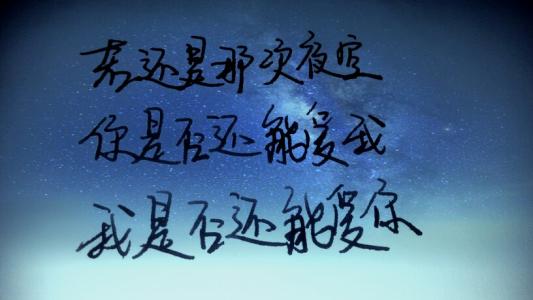 若还是那次夜空
你是否还能爱我
我是否还能爱你